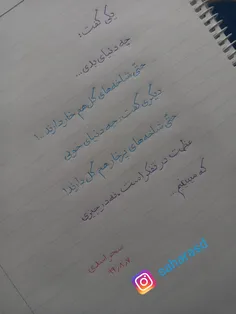 یکی گفت:
چه دنیای بدی...
حتی شاخه‌های گل هم خار دارند...!
دیگری گفت: چه دنیای خوبی
حتی شاخه‌های پرخار هم گل دارند!
عظمت در تفکر است، نه در چیزی
که میبینم
سحر اسدی